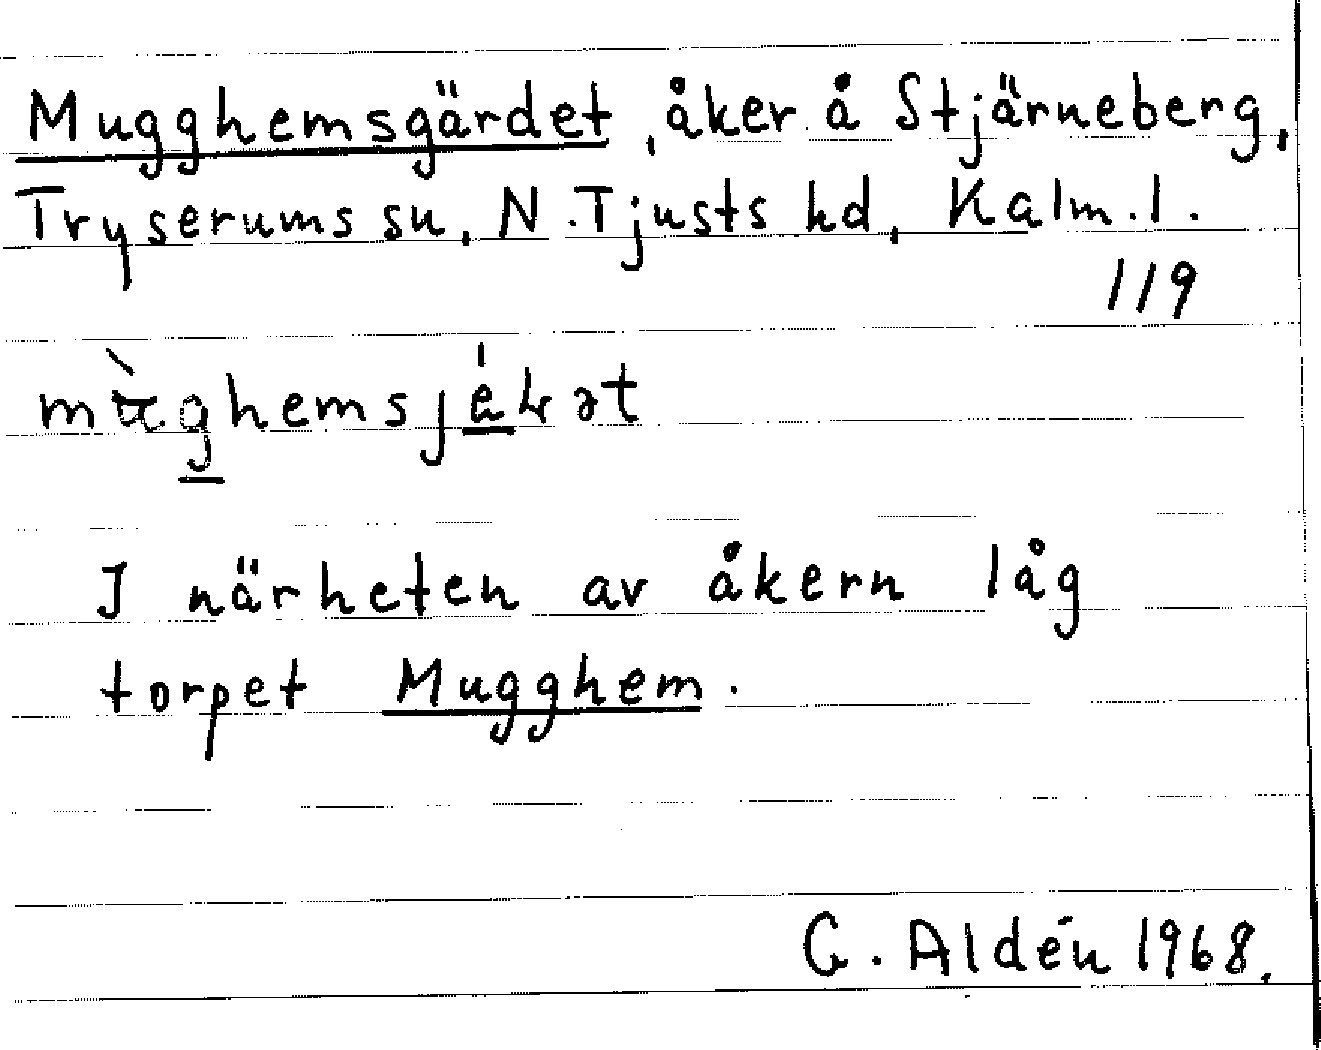 Mugghemsgärdet, åker å Stjärneberg,
Tryserums sn, N. Tjusts hd, Kalm. l.
119
I närheten av åkern låg
torpet Mugghem.
G. Aldén 1968.